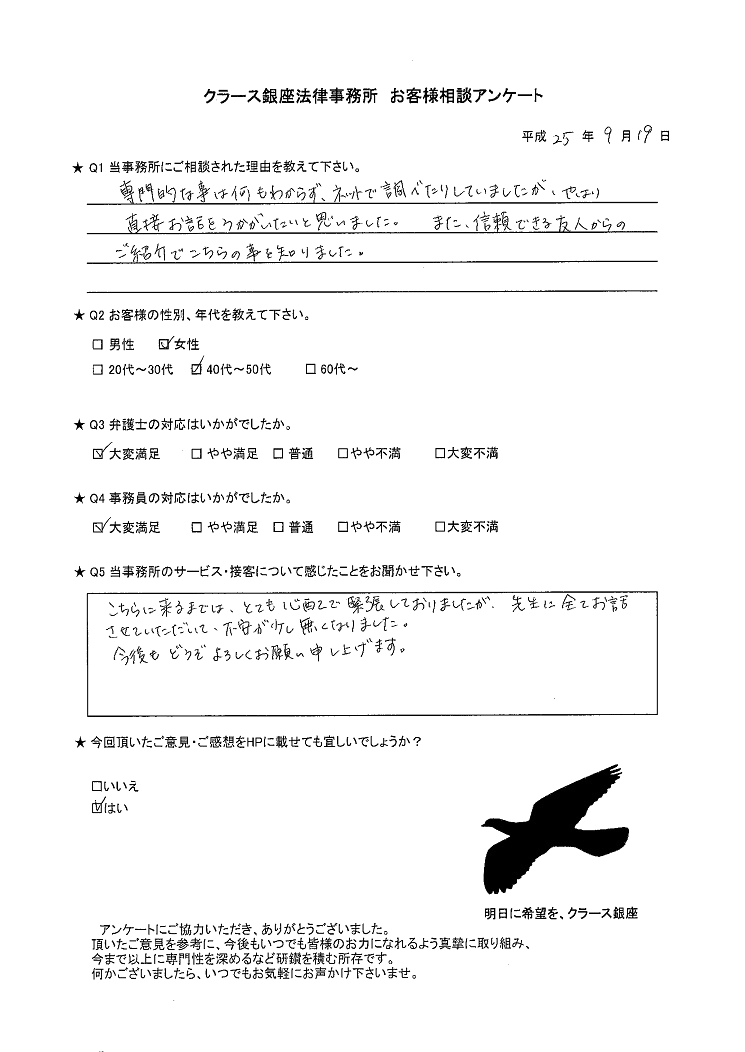 クラース銀座法律事務所 お客様相談アンケート
平成 25 年 9 月 19 日
★ Q1 当事務所にご相談された理由を教えて下さい。
専門的な事は何もわからず、ネットで調べたりしていましたが、やはり
直接お話をうかがいたいと思いました。 また、信頼できる友人からの
ご紹介でこちらの事を知りました。
★ Q2 お客様の性別、年代を教えて下さい。
□ 男性 ☑女性
□ 20代～30代 ☑ 40代～50代 □ 60代～
★ Q3 弁護士の対応はいかがでしたか。
☑大変満足 □ やや満足 □ 普通 □やや不満 □大変不満
★ Q4 事務員の対応はいかがでしたか。
☑大変満足 □ やや満足 □ 普通 □やや不満 □大変不満
★ Q5 当事務所のサービス・接客について感じたことをお聞かせ下さい。
こちらに来るまでは、とても心配で緊張しておりましたが、先生に全てお話
させていただいて、不安が少し無くなりました。
今後もどうぞよろしくお願い申し上げます。
★ 今回頂いたご意見・ご感想をHPに載せても宜しいでしょうか？
□いいえ
☑はい
明日に希望を、クラース銀座
アンケートにご協力いただき、ありがとうございました。
頂いたご意見を参考に、今後もいつでも皆様のお力になれるよう真摯に取り組み、
今まで以上に専門性を深めるなど研鑽を積む所存です。
何かございましたら、いつでもお気軽にお声かけ下さいませ。